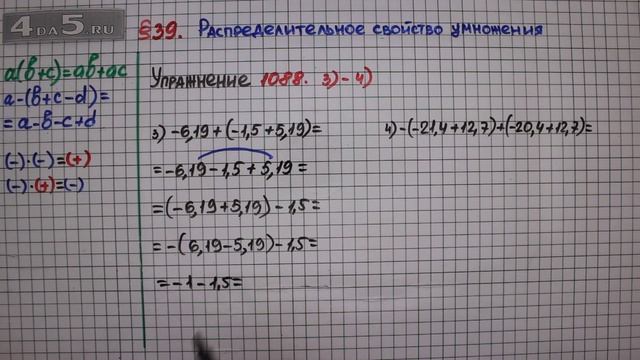 4ДА5.RU
§39. Распределительное свойство умножения
a(b+c)=ab+ac
a-(b+c-d)=
=a-b-c+d
(-)·(-)=(+)
(-)·(+)=(-)
Упражнение 1088. 3)-4)
3) -6,19+(-1,5+5,19)=
=-6,19-1,5+5,19=
=(-6,19+5,19)-1,5=
=-(6,19-5,19)-1,5=
=-1-1,5=
4) -(-21,4+12,7)+(-20,4+12,7)=